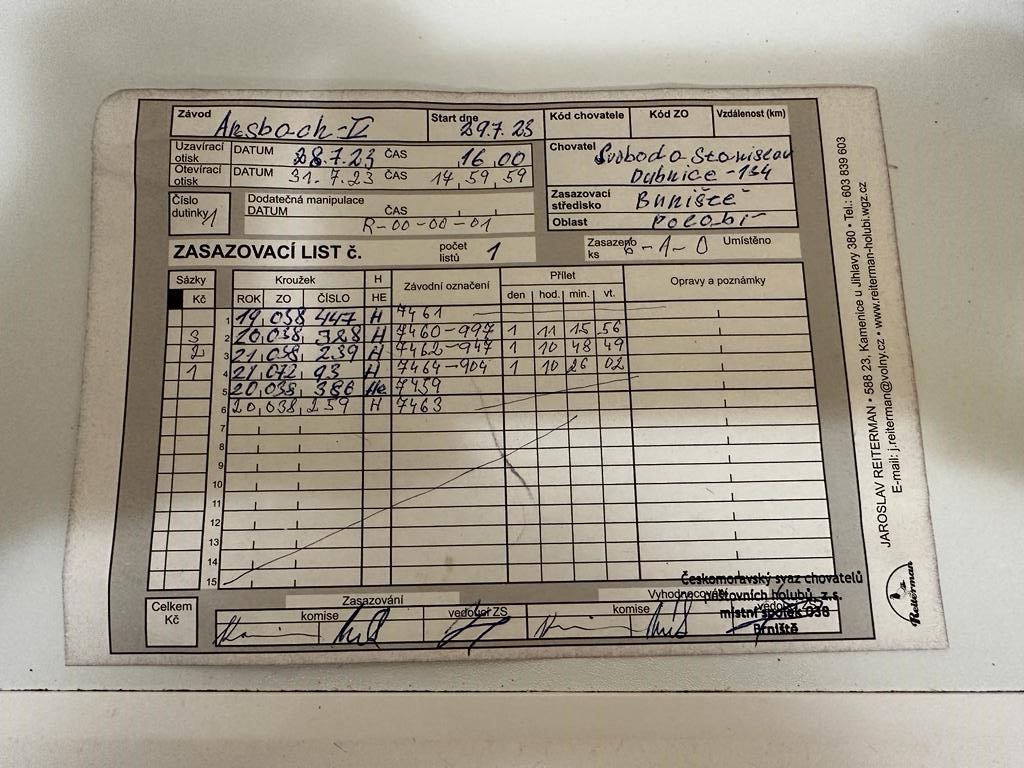 Závod Ansbach-II Start dne 29.7.23 Kód chovatele Kód ZO Vzdálenost (km)
Uzavírací otisk DATUM 28.7.23 ČAS 16,00
Otevírací otisk DATUM 31.7.23 ČAS 14,59,59
Chovatel Svoboda Stanislav
Dubnice-134
Zasazovací středisko Brniště
Oblast Polabí
Číslo dutinky 1 Dodatečná manipulace
DATUM ČAS
R-00-00-01
ZASAZOVACÍ LIST č. počet listů 1 Zasazeno ks 6-1-0 Umístěno
Sázky Kroužek H Závodní označení Přílet Opravy a poznámky
Kč ROK ZO ČÍSLO HE den hod. min. vt.
1 19,038 447 H 7461
3 2 20,038 388 H 7460-997 1 11 15 56
2 3 21,038 239 H 7462-947 1 10 48 49
1 4 21,072 93 H 7464-904 1 10 26 02
5 20,038 386 He 7459
6 20,038,259 H 7463
7
8
9
10
11
12
13
14
15
Celkem Kč Zasazování Vyhodnocování
komise vedoucí ZS komise vedoucí
Českomoravský svaz chovatelů
poštovních holubů, z.s.
místní spolek 038
Brniště
JAROSLAV REITERMAN • 588 23, Kamenice u Jihlavy 380 • Tel.: 603 839 603
E-mail: j.reiterman@volny.cz • www.reiterman-holubi.wgz.cz
Reiterman